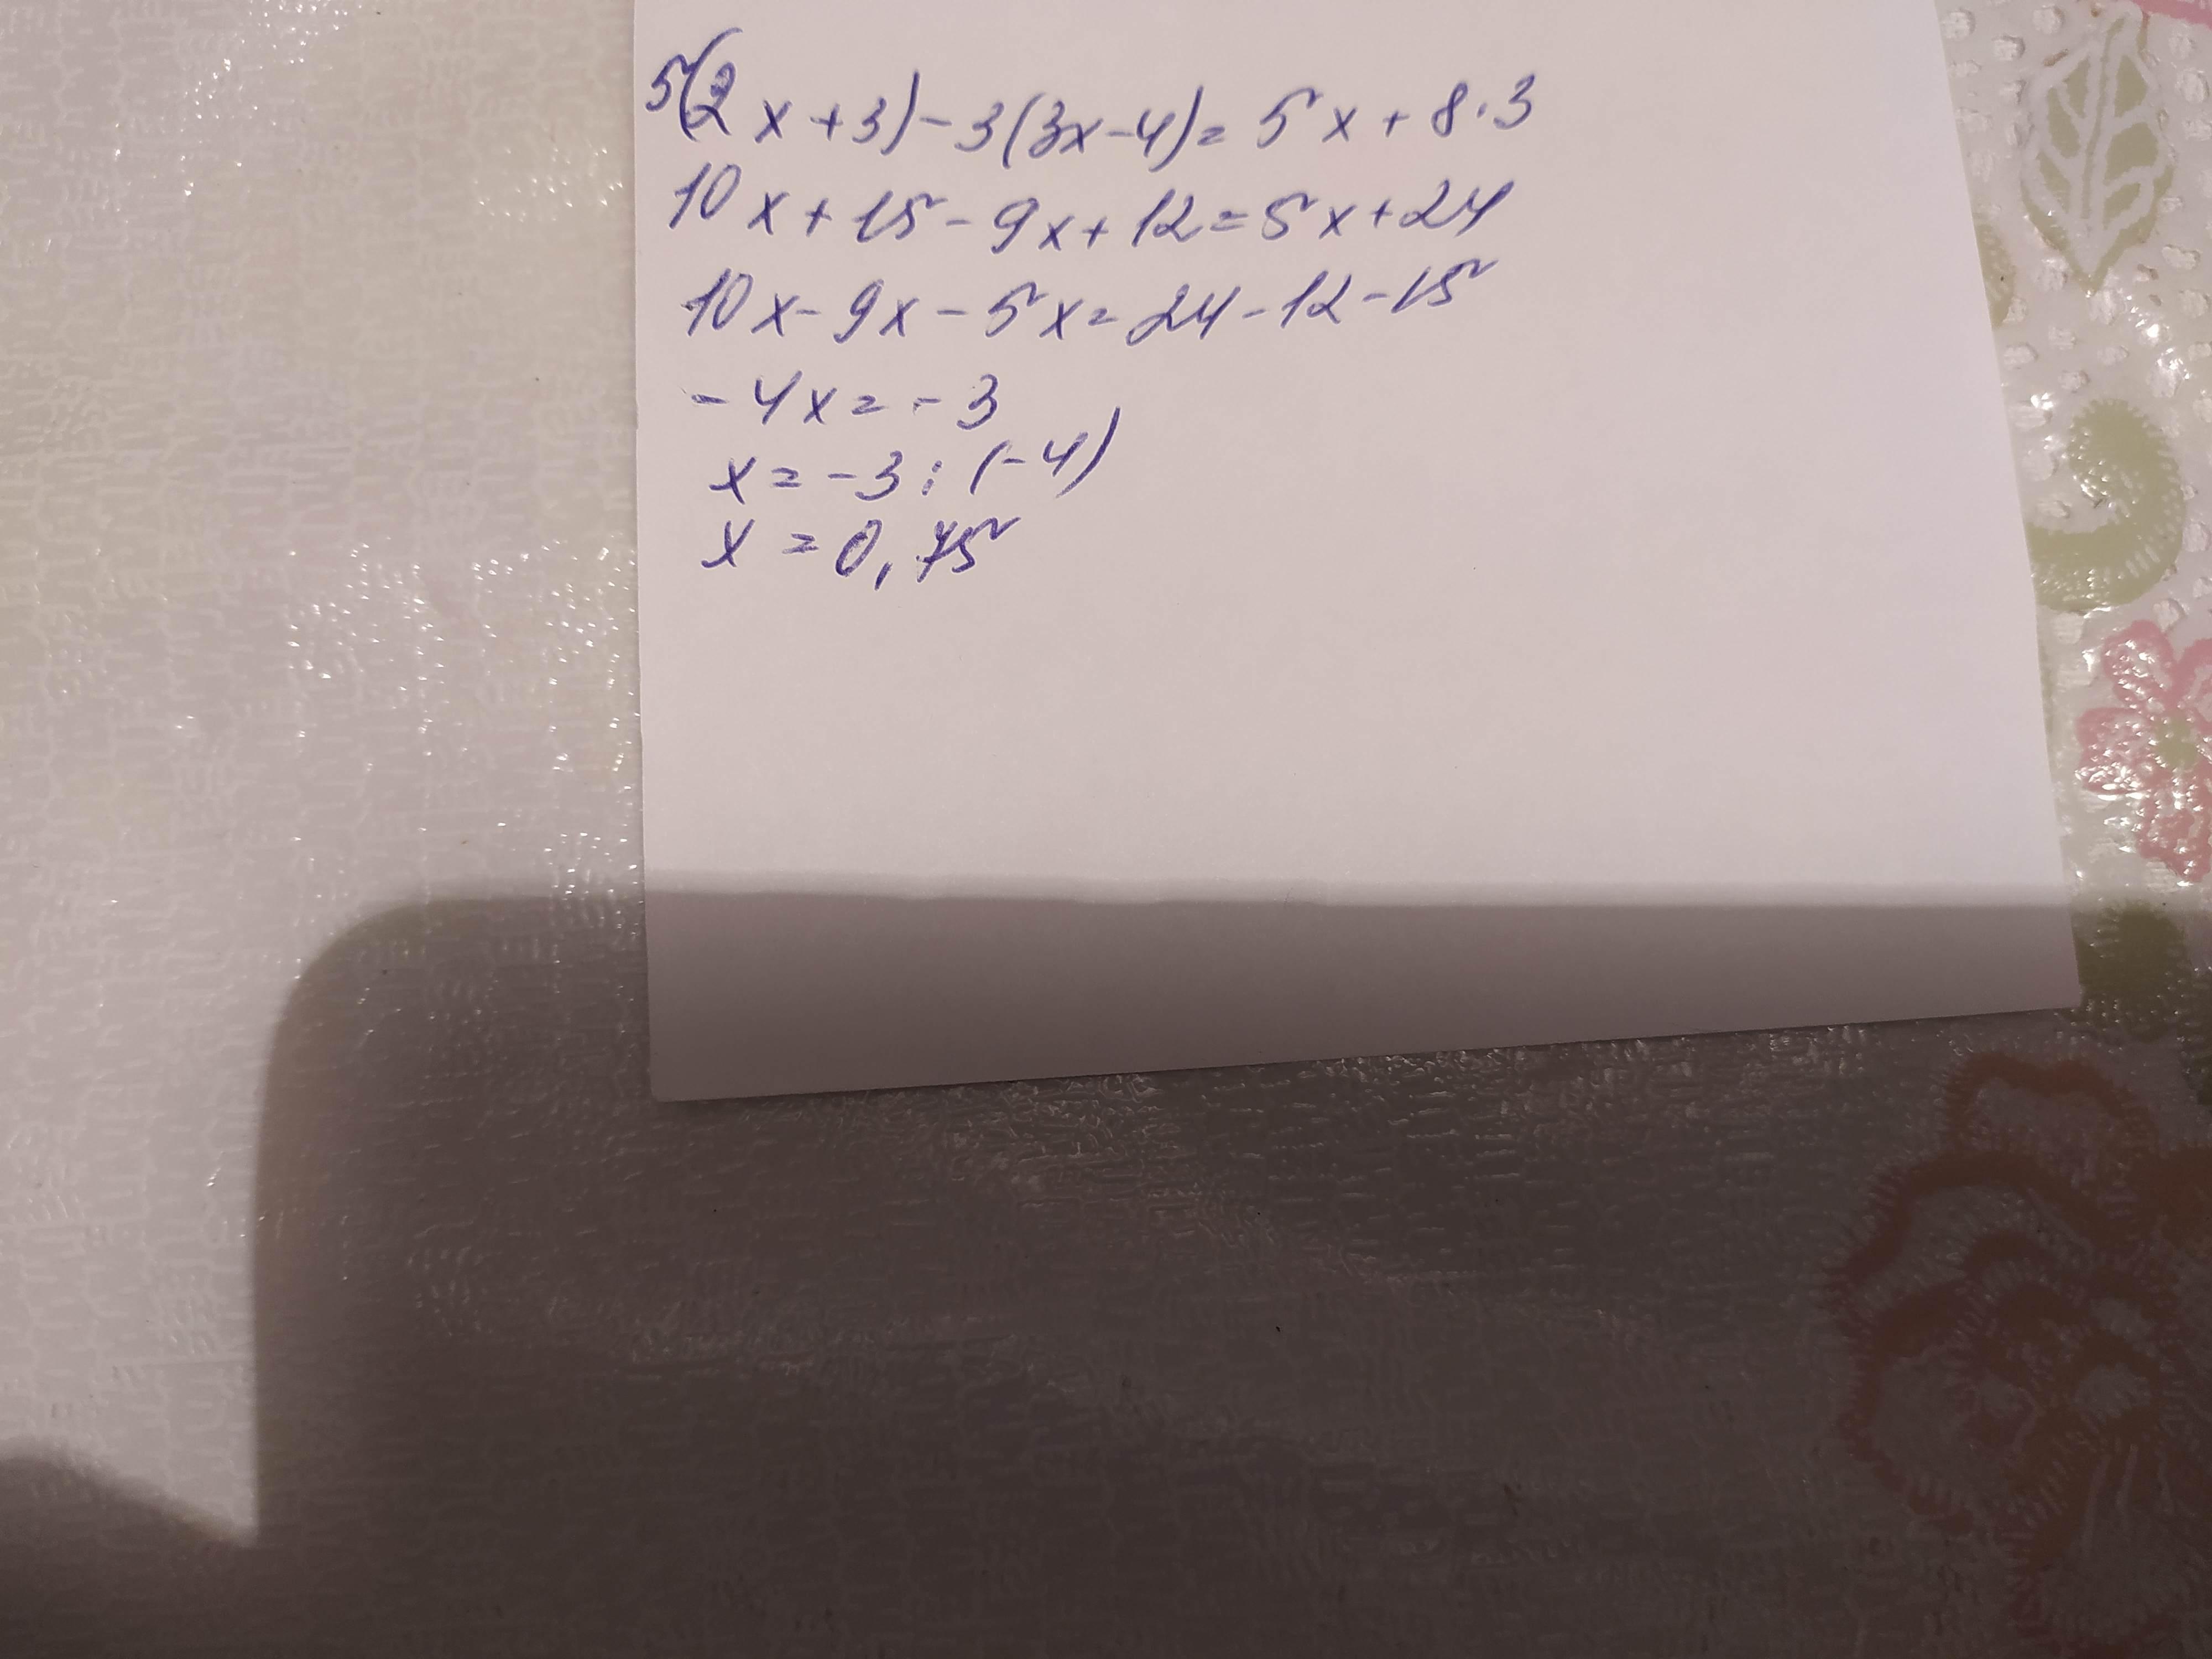 5(2x+3)-3(3x-4)=5x+8·3
10x+15-9x+12=5x+24
10x-9x-5x=24-12-15
-4x=-3
x=-3:(-4)
x=0,75